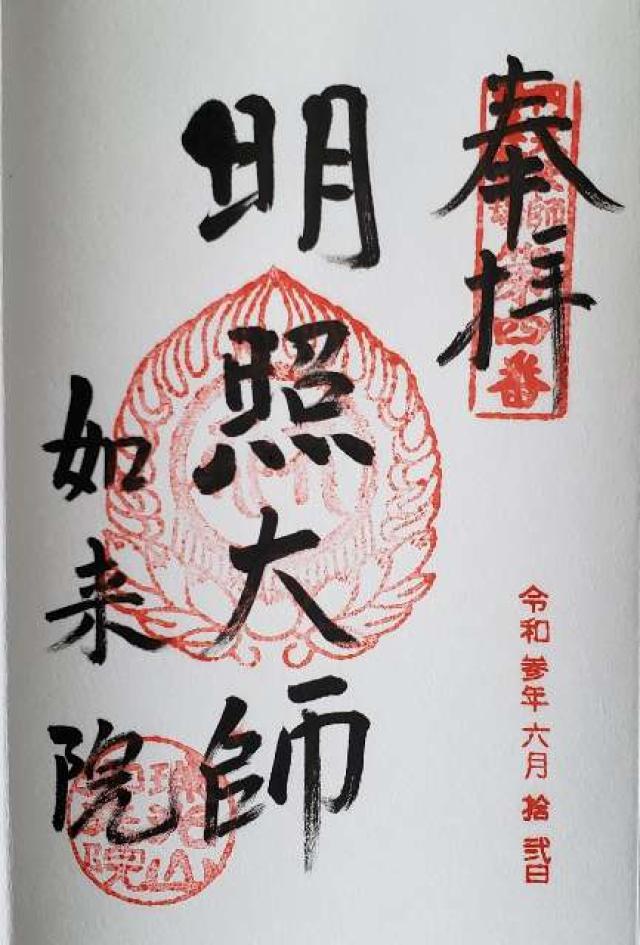 奉拝
第四番
令和参年六月拾弐日
明照大師
如来院